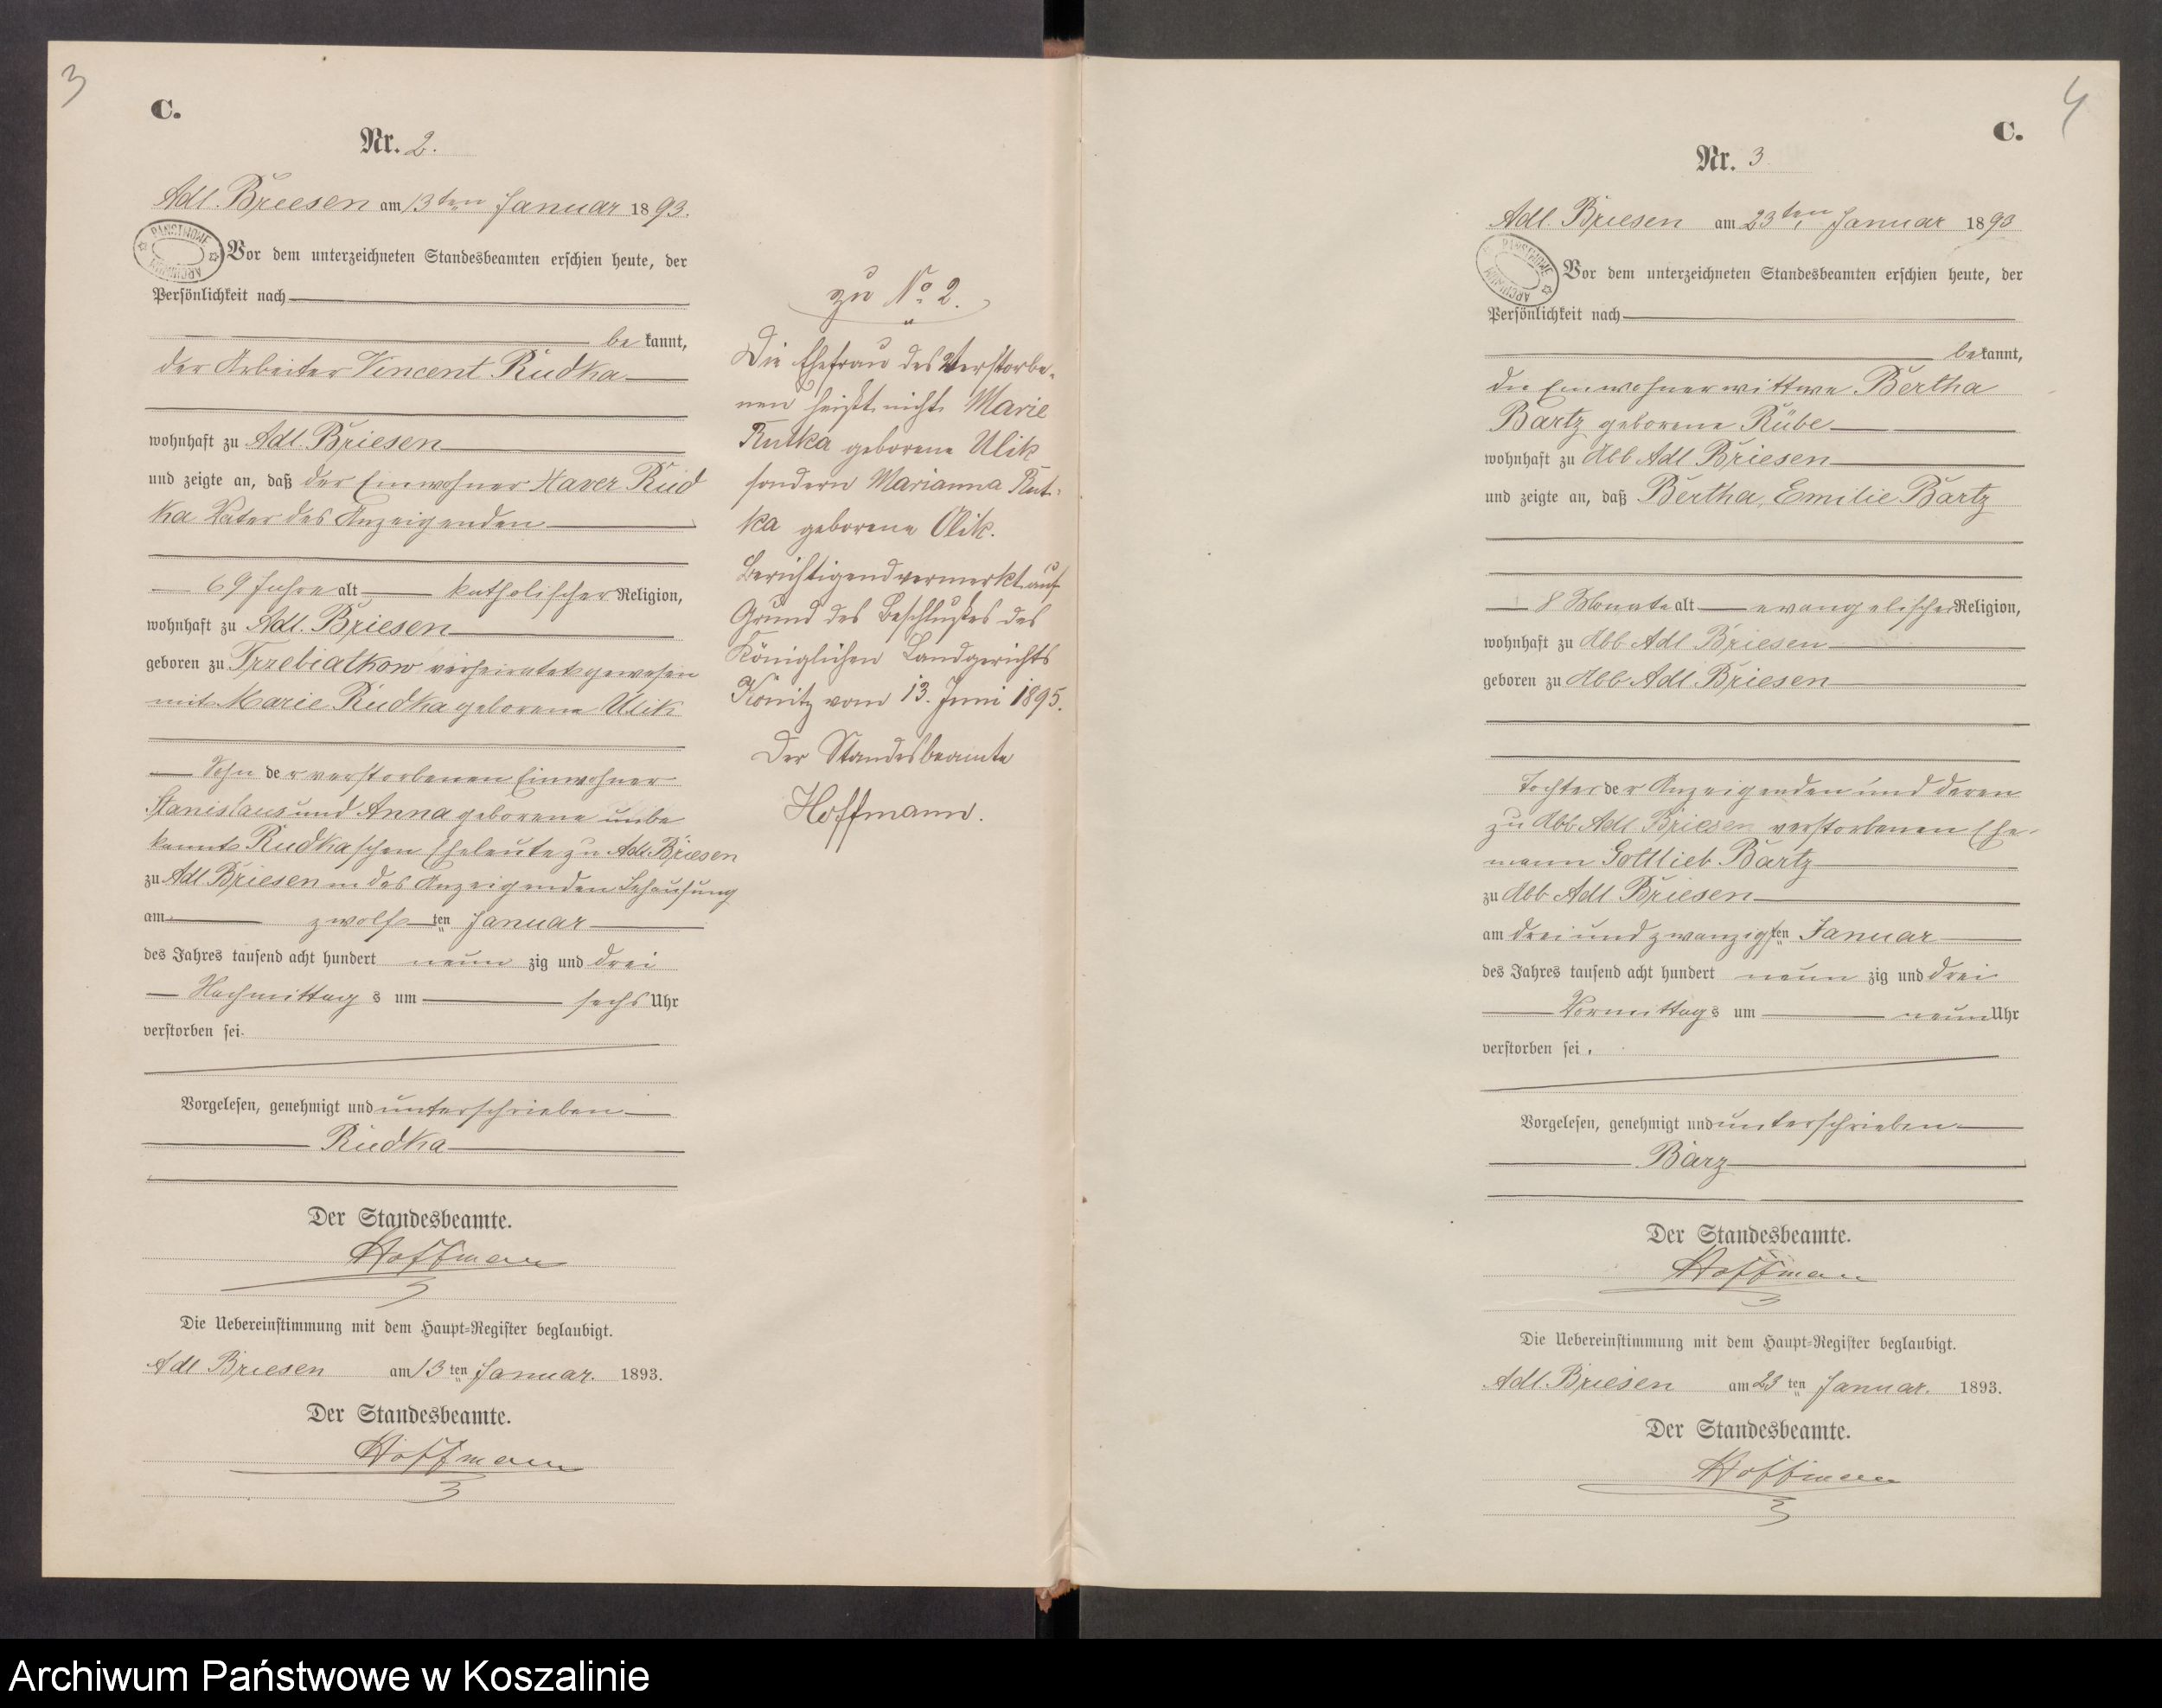 3
C.
Nr. 2.
Adl. Briesen am 13ten Januar 1893.
PANSTWOWE ARCHIWUM
Vor dem unterzeichneten Standesbeamten erschien heute, der
Persönlichkeit nach
be kannt,
der Arbeiter Vincent Rudka
wohnhaft zu Adl. Briesen
und zeigte an, daß der Einwohner Xaver Rud
ka Vater des Anzeigenden
69 Jahre alt katholischer Religion,
wohnhaft zu Adl. Briesen
geboren zu Trzebiatkow verheiratet gewesen
mit Marie Rudka geborene Ulik
Sohn der verstorbenen Einwohner
Stanislaus und Anna geborene unbe
kannt Rudkaschen Eheleute zu Adl. Briesen
zu Adl Briesen in des Anzeigenden Behausung
am zwölf ten Januar
des Jahres tausend acht hundert neun zig und drei
Nachmittag s um sechs Uhr
verstorben sei.
Vorgelesen, genehmigt und unterschrieben
Rudka
Der Standesbeamte.
Hoffmann
Die Uebereinstimmung mit dem Haupt-Register beglaubigt.
Adl Briesen am 13 ten Januar. 1893.
Der Standesbeamte.
Hoffmann
zu No 2.
Die Ehefrau des Verstorbe-
nen heißt nicht Marie
Rutka geborene Ulik
sondern Marianna Rut-
ka geborene Olik.
Berichtigend vermerkt auf
Grund des Beschlußes des
Königlichen Landgerichts
Konitz vom 13. Juni 1895.
Der Standesbeamte
Hoffmann.
4
C.
Nr. 3
Adl. Briesen am 23ten Januar 1893
PANSTWOWE ARCHIWUM
Vor dem unterzeichneten Standesbeamten erschien heute, der
Persönlichkeit nach
bekannt,
die Einwohnerwittwe Bertha
Bartz geborene Rübe
wohnhaft zu Abb Adl Briesen
und zeigte an, daß Bertha, Emilie Bartz
8 Monate alt evangelischer Religion,
wohnhaft zu Abb Adl Briesen
geboren zu Abb Adl. Briesen
Tochter der Anzeigenden und deren
zu Abb Adl Briesen verstorbenen Ehe-
mann Gottlieb Bartz
zu Abb Adl Briesen
am drei und zwanzigsten Januar
des Jahres tausend acht hundert neun zig und drei
Vormittags um neun Uhr
verstorben sei.
Vorgelesen, genehmigt und unterschrieben
Barz
Der Standesbeamte.
Hoffmann
Die Uebereinstimmung mit dem Haupt-Register beglaubigt.
Adl. Briesen am 23 ten Januar. 1893.
Der Standesbeamte.
Hoffmann
Archiwum Państwowe w Koszalinie